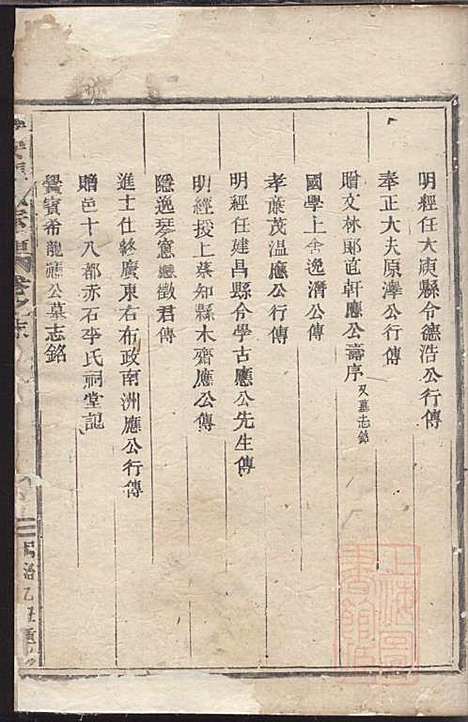 明經任大庾縣令德浩公行傳
奉正大夫原澤公行傳
贈文林郎直軒應公壽序 又墓志銘
國學上舍逸濟公傳
孝廉茂溫應公行傳
明經任建昌縣令學古應公先生傳
明經授上蔡知縣木齋應公傳
隱逸琴窻應徵君傳
進士仕終廣東右布政南洲應公行傳
贈邑十八都赤石李氏祠堂記
黌賓希龍應公墓志銘
卷之
治乙丑重
上海圖書館藏